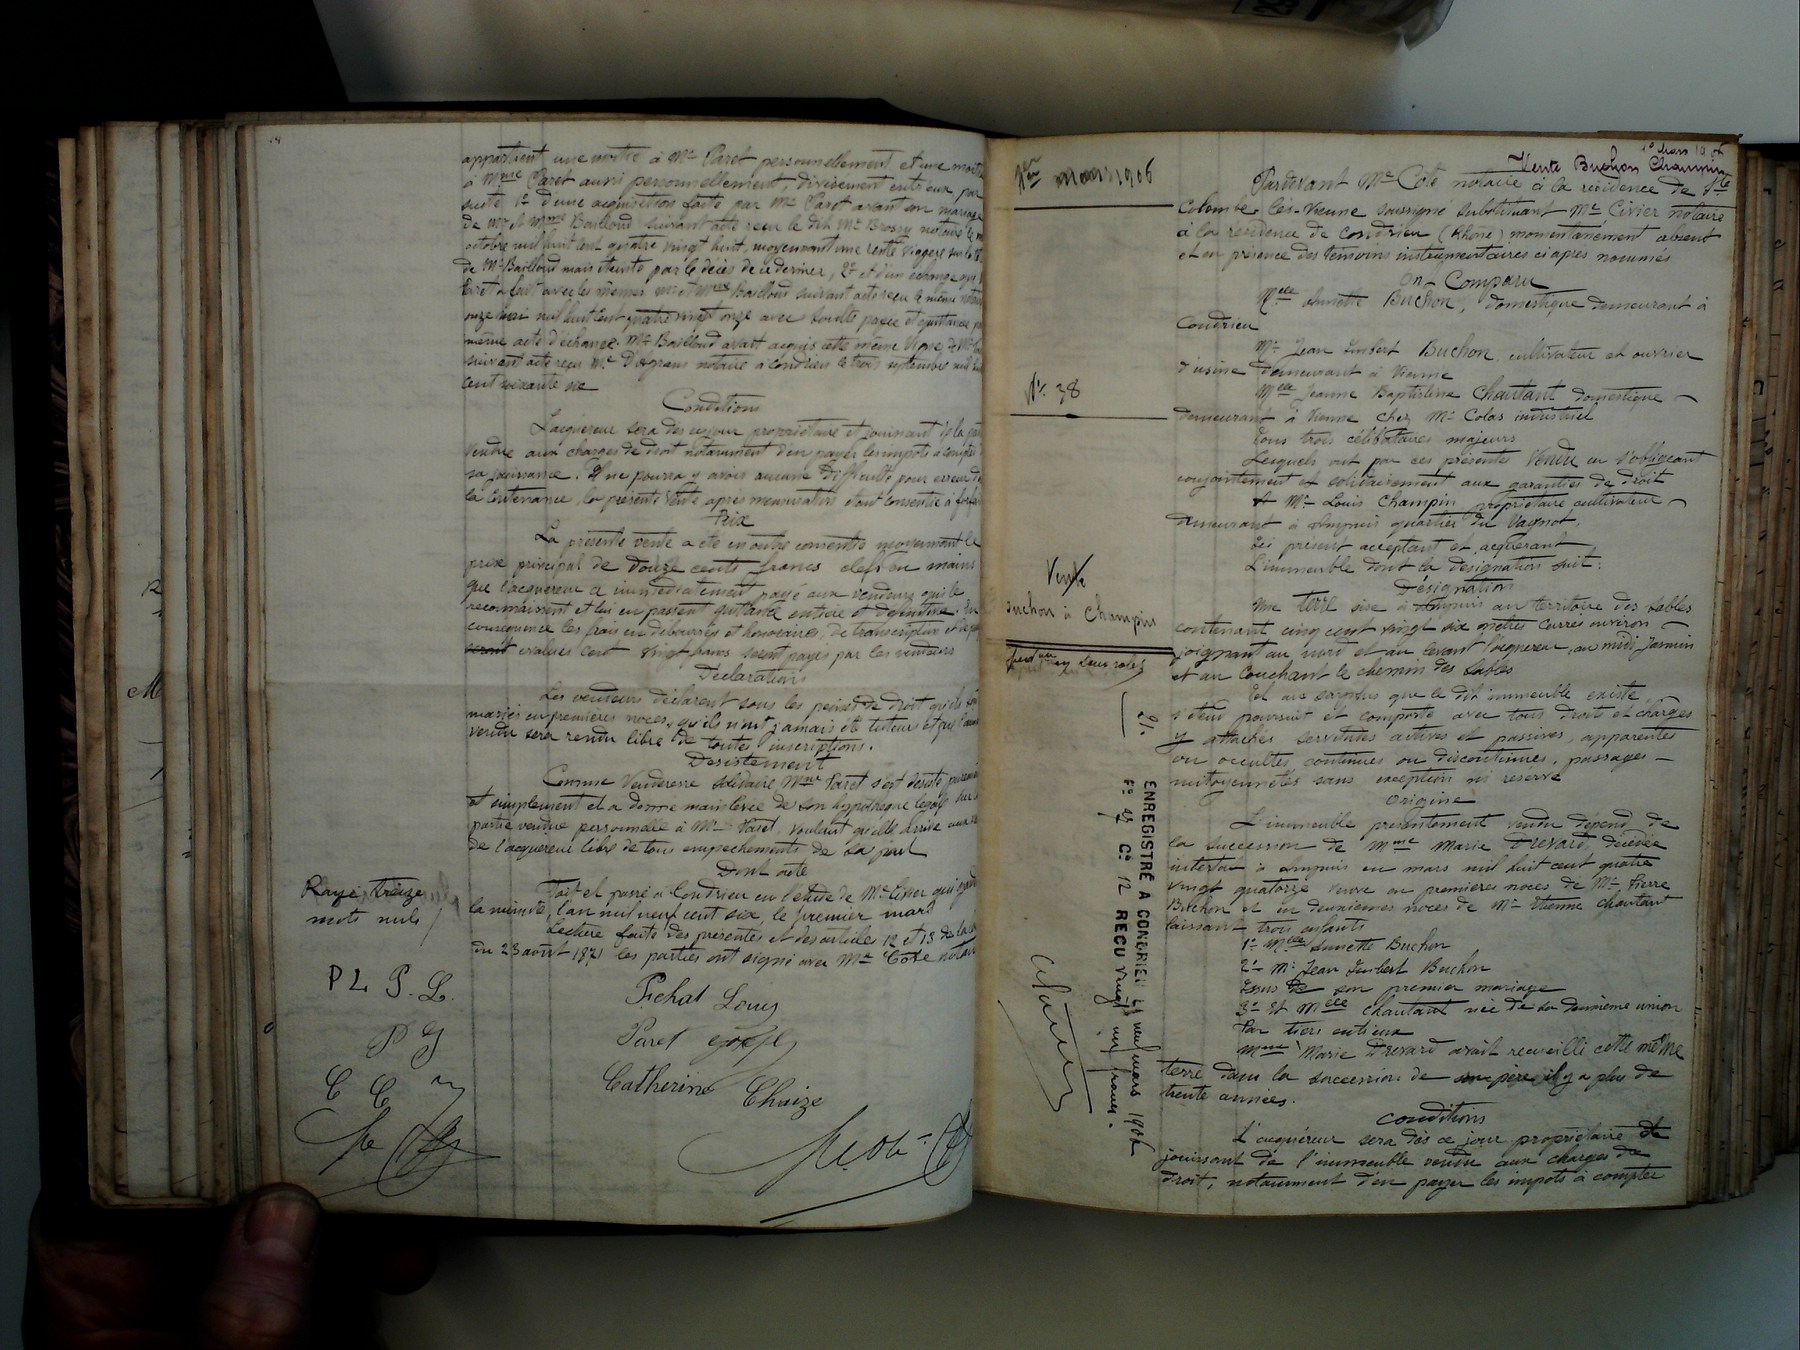 appartient une moitié à Mr Paret personnellement et une moitié
à Mme Paret aussi personnellement, divisément entre eux par
suite 1º d'une acquisition faite par Mr Paret avant son mariage
de Mr et Mme Bailloud suivant acte reçu le dit Me Brossy notaire le
octobre mil huit cent quatre vingt huit, moyennant une rente viagère sur la tête
de Mr Bailloud mais éteinte par le décès de ce dernier, 2º et d'un échange que
Paret a fait avec les mêmes Mr et Mme Bailloud suivant acte reçu le même notaire
onze mil huit cent quatre vingt onze avec soulte payée et quittancée
même acte d'échange. Mr Bailloud avait acquis cette même vigne de Mr
suivant acte reçu Me notaire à Condrieu le trois septembre mil huit
cent soixante six
Conditions
L'acquéreur sera dès ce jour propriétaire et jouissant de la
vendue aux charges de droit notamment d'en payer les impôts à compter
sa jouissance. Il ne pourra y avoir aucune difficulté pour erreur de
la contenance, la présente vente après mensuration étant consentie à forfait
Prix
La présente vente a été en outre consentie moyennant le
prix principal de Douze cents francs clefs en mains
que l'acquéreur a immédiatement payé aux vendeurs qui le
reconnaissent et lui en passent quittance entière et définitive. En
conséquence les frais en déboursés et honoraires, de transcription et de
seront évalués cent vingt francs seront payés par les vendeurs
Déclarations
Les vendeurs déclarent sous les peines de droit qu'ils sont
mariés en premières noces, qu'ils n'ont jamais été tuteurs et que l'immeuble
vendu sera rendu libre de toutes inscriptions.
Désistement
Comme venderesse solidaire Mme Paret s'est désistée purement
et simplement et a donné mainlevée de son hypothèque légale sur la
partie vendue personnelle à Mr Paret, voulant qu'elle arrive aux mains
de l'acquéreur libre de tous empêchements de sa part
Dont acte
Fait et passé à Condrieu en l'étude de Me Civier qui garde
la minute, l'an mil neuf cent six, le premier mars
Lecture faite des présentes et des articles 12 et 13 de la loi
du 23 août 1871 les parties ont signé avec Me Cote notaire
Rayé treize
mots nuls
P L P. L.
P J
C C
Pichat Louis
Paret Joseph
Catherine Chaize
Me Cote
1er mars 1906
Nº 38
Vente
Buchon à Champin
21.
ENREGISTRÉ A CONDRIEU le neuf mars 1906
Fº 45 Cº 12 REÇU vingt un francs.
1er Mars 1906
Vente Buchon Champin
Pardevant Me Cote notaire à la résidence de Ste
Colombe-lès-Vienne soussigné substituant Me Civier notaire
à la résidence de Condrieu (Rhône) momentanément absent
et en présence des témoins instrumentaires ci après nommés
On Comparu
Melle Annette Buchon, domestique demeurant à
Condrieu
Mr Jean Imbert Buchon cultivateur et ouvrier
d'usine demeurant à Vienne
Melle Jeanne Baptistine Chautant domestique
demeurant à Vienne chez Mr Colas industriel
Tous trois célibataires majeurs
Lesquels ont par ces présentes vendu en s'obligeant
conjointement et solidairement aux garanties de droit
A Mr Louis Champin propriétaire cultivateur
demeurant à Ampuis quartier du Vagnot,
Ici présent acceptant et acquérant
L'immeuble dont la désignation suit:
Désignation
Une terre sise à Ampuis au territoire des Sables
contenant cinq cent vingt six mètres carrés environ
joignant au nord et au levant l'acquéreur, au midi Jamin
et au couchant le chemin des Sables
Tel au surplus que le dit immeuble existe,
s'étend poursuit et comporte avec tous droits et charges
y attachés servitudes actives et passives, apparentes
ou occultes continues ou discontinues, passages
mitoyennetés sans exception ni réserve
Origine
L'immeuble présentement vendu dépend de
la succession de Mme Marie Drevard, décédée
intestat à Ampuis en mars mil huit cent quatre
vingt quatorze veuve en premières noces de Mr Pierre
Buchon et en deuxièmes noces de Mr Etienne Chautant
laissant trois enfants
1º Melle Annette Buchon
2º Mr Jean Imbert Buchon
Issus de son premier mariage
3º Et Melle Chautant née de sa deuxième union
Par tiers entr'eux
Mme Marie Drevard avait recueilli cette même
terre dans la succession de son père il y a plus de
trente années.
Conditions
L'acquéreur sera dès ce jour propriétaire et
jouissant de l'immeuble vendu aux charges de
droit, notamment d'en payer les impôts à compter